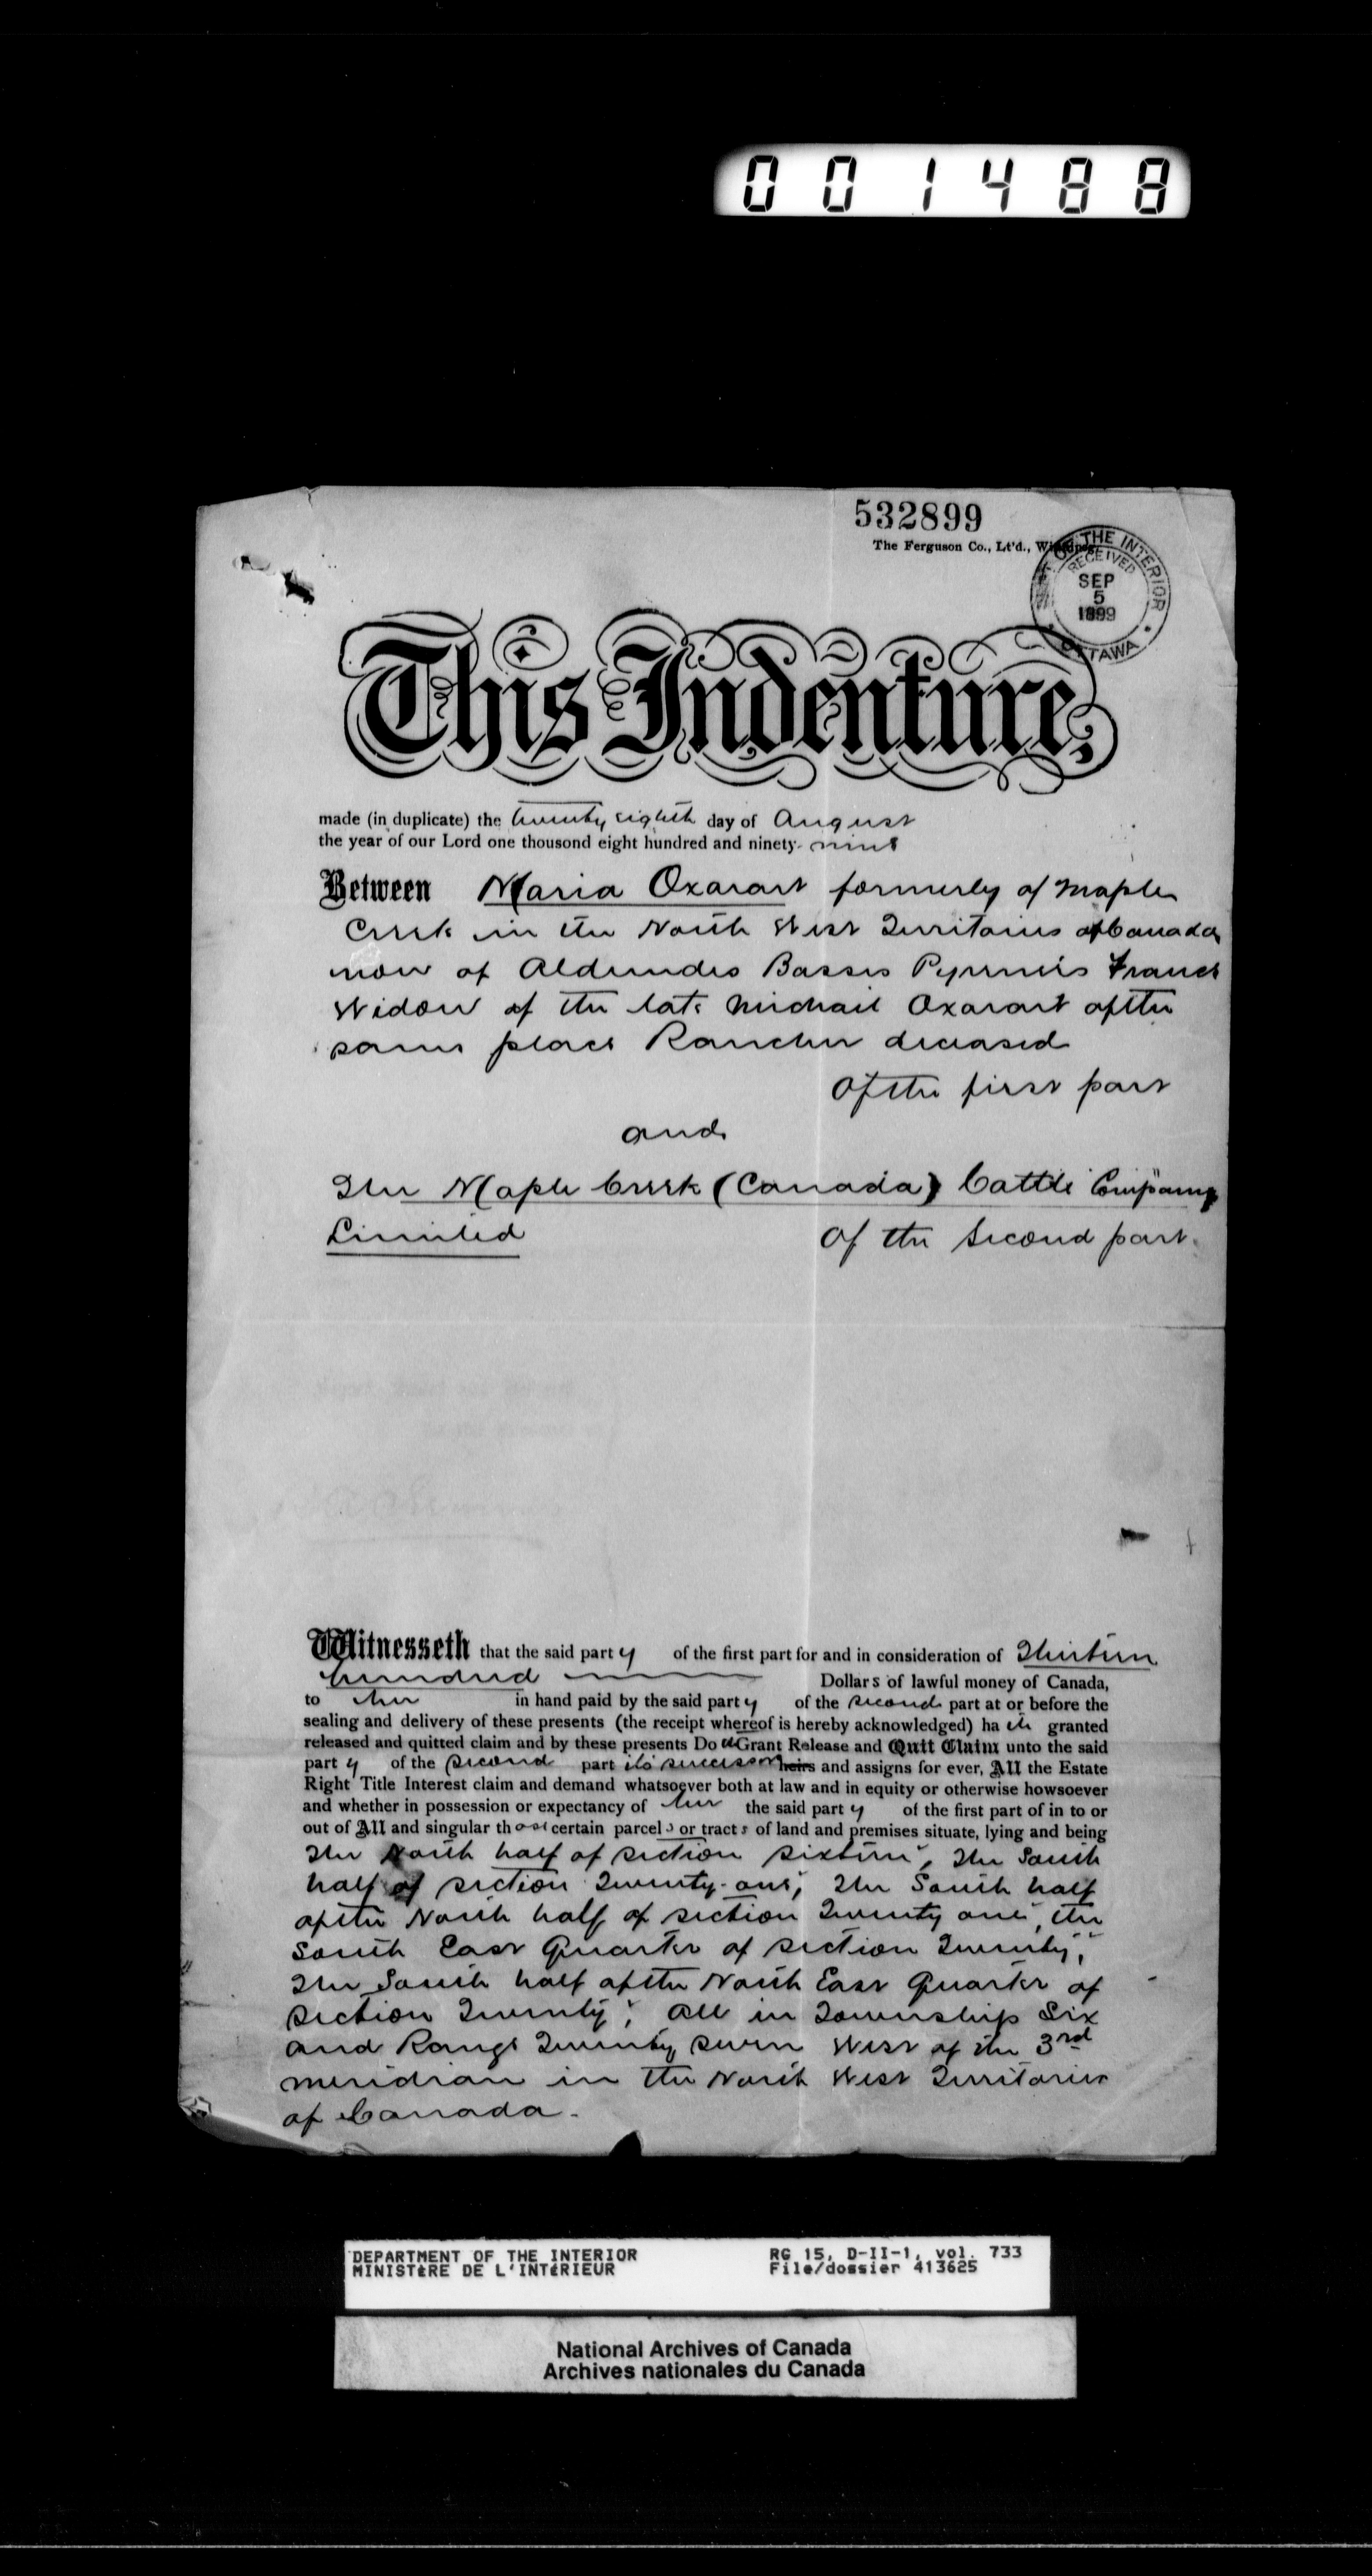 001488
532899
The Ferguson Co., Lt'd.,
OF THE INTERIOR
RECEIVED
SEP
5
1899
OTTAWA
This Indenture,
made (in duplicate) the twenty eighth day of August
the year of our Lord one thousand eight hundred and ninety-nine
Between Maria Oxarart formerly of Maple
Creek in the North West Territories of Canada
now of Aldundes Basses Pyrenees France
Widow of the late Michael Oxarart of the
same place Rancher deceased
Of the first part
and
The Maple Creek (Canada) Cattle Company
Limited Of the Second part.
Witnesseth that the said party of the first part for and in consideration of Thirteen
hundred Dollars of lawful money of Canada,
to her in hand paid by the said party of the second part at or before the
sealing and delivery of these presents (the receipt whereof is hereby acknowledged) hath granted
released and quitted claim and by these presents Doth Grant Release and Quit Claim unto the said
party of the second part its successors heirs and assigns for ever, All the Estate
Right Title Interest claim and demand whatsoever both at law and in equity or otherwise howsoever
and whether in possession or expectancy of her the said party of the first part of in to or
out of All and singular those certain parcels or tracts of land and premises situate, lying and being
The North half of section sixteen, The South
half of section Twenty-one; The South half
of the North half of section Twenty one, the
South East Quarter of section Twenty;
The South half of the North East Quarter of
section Twenty; all in Township Six
and Range Twenty seven West of the 3rd
meridian in the North West Territories
of Canada.
DEPARTMENT OF THE INTERIOR RG 15, D-II-1, vol. 733
MINISTÈRE DE L'INTÉRIEUR File/dossier 413625
National Archives of Canada
Archives nationales du Canada